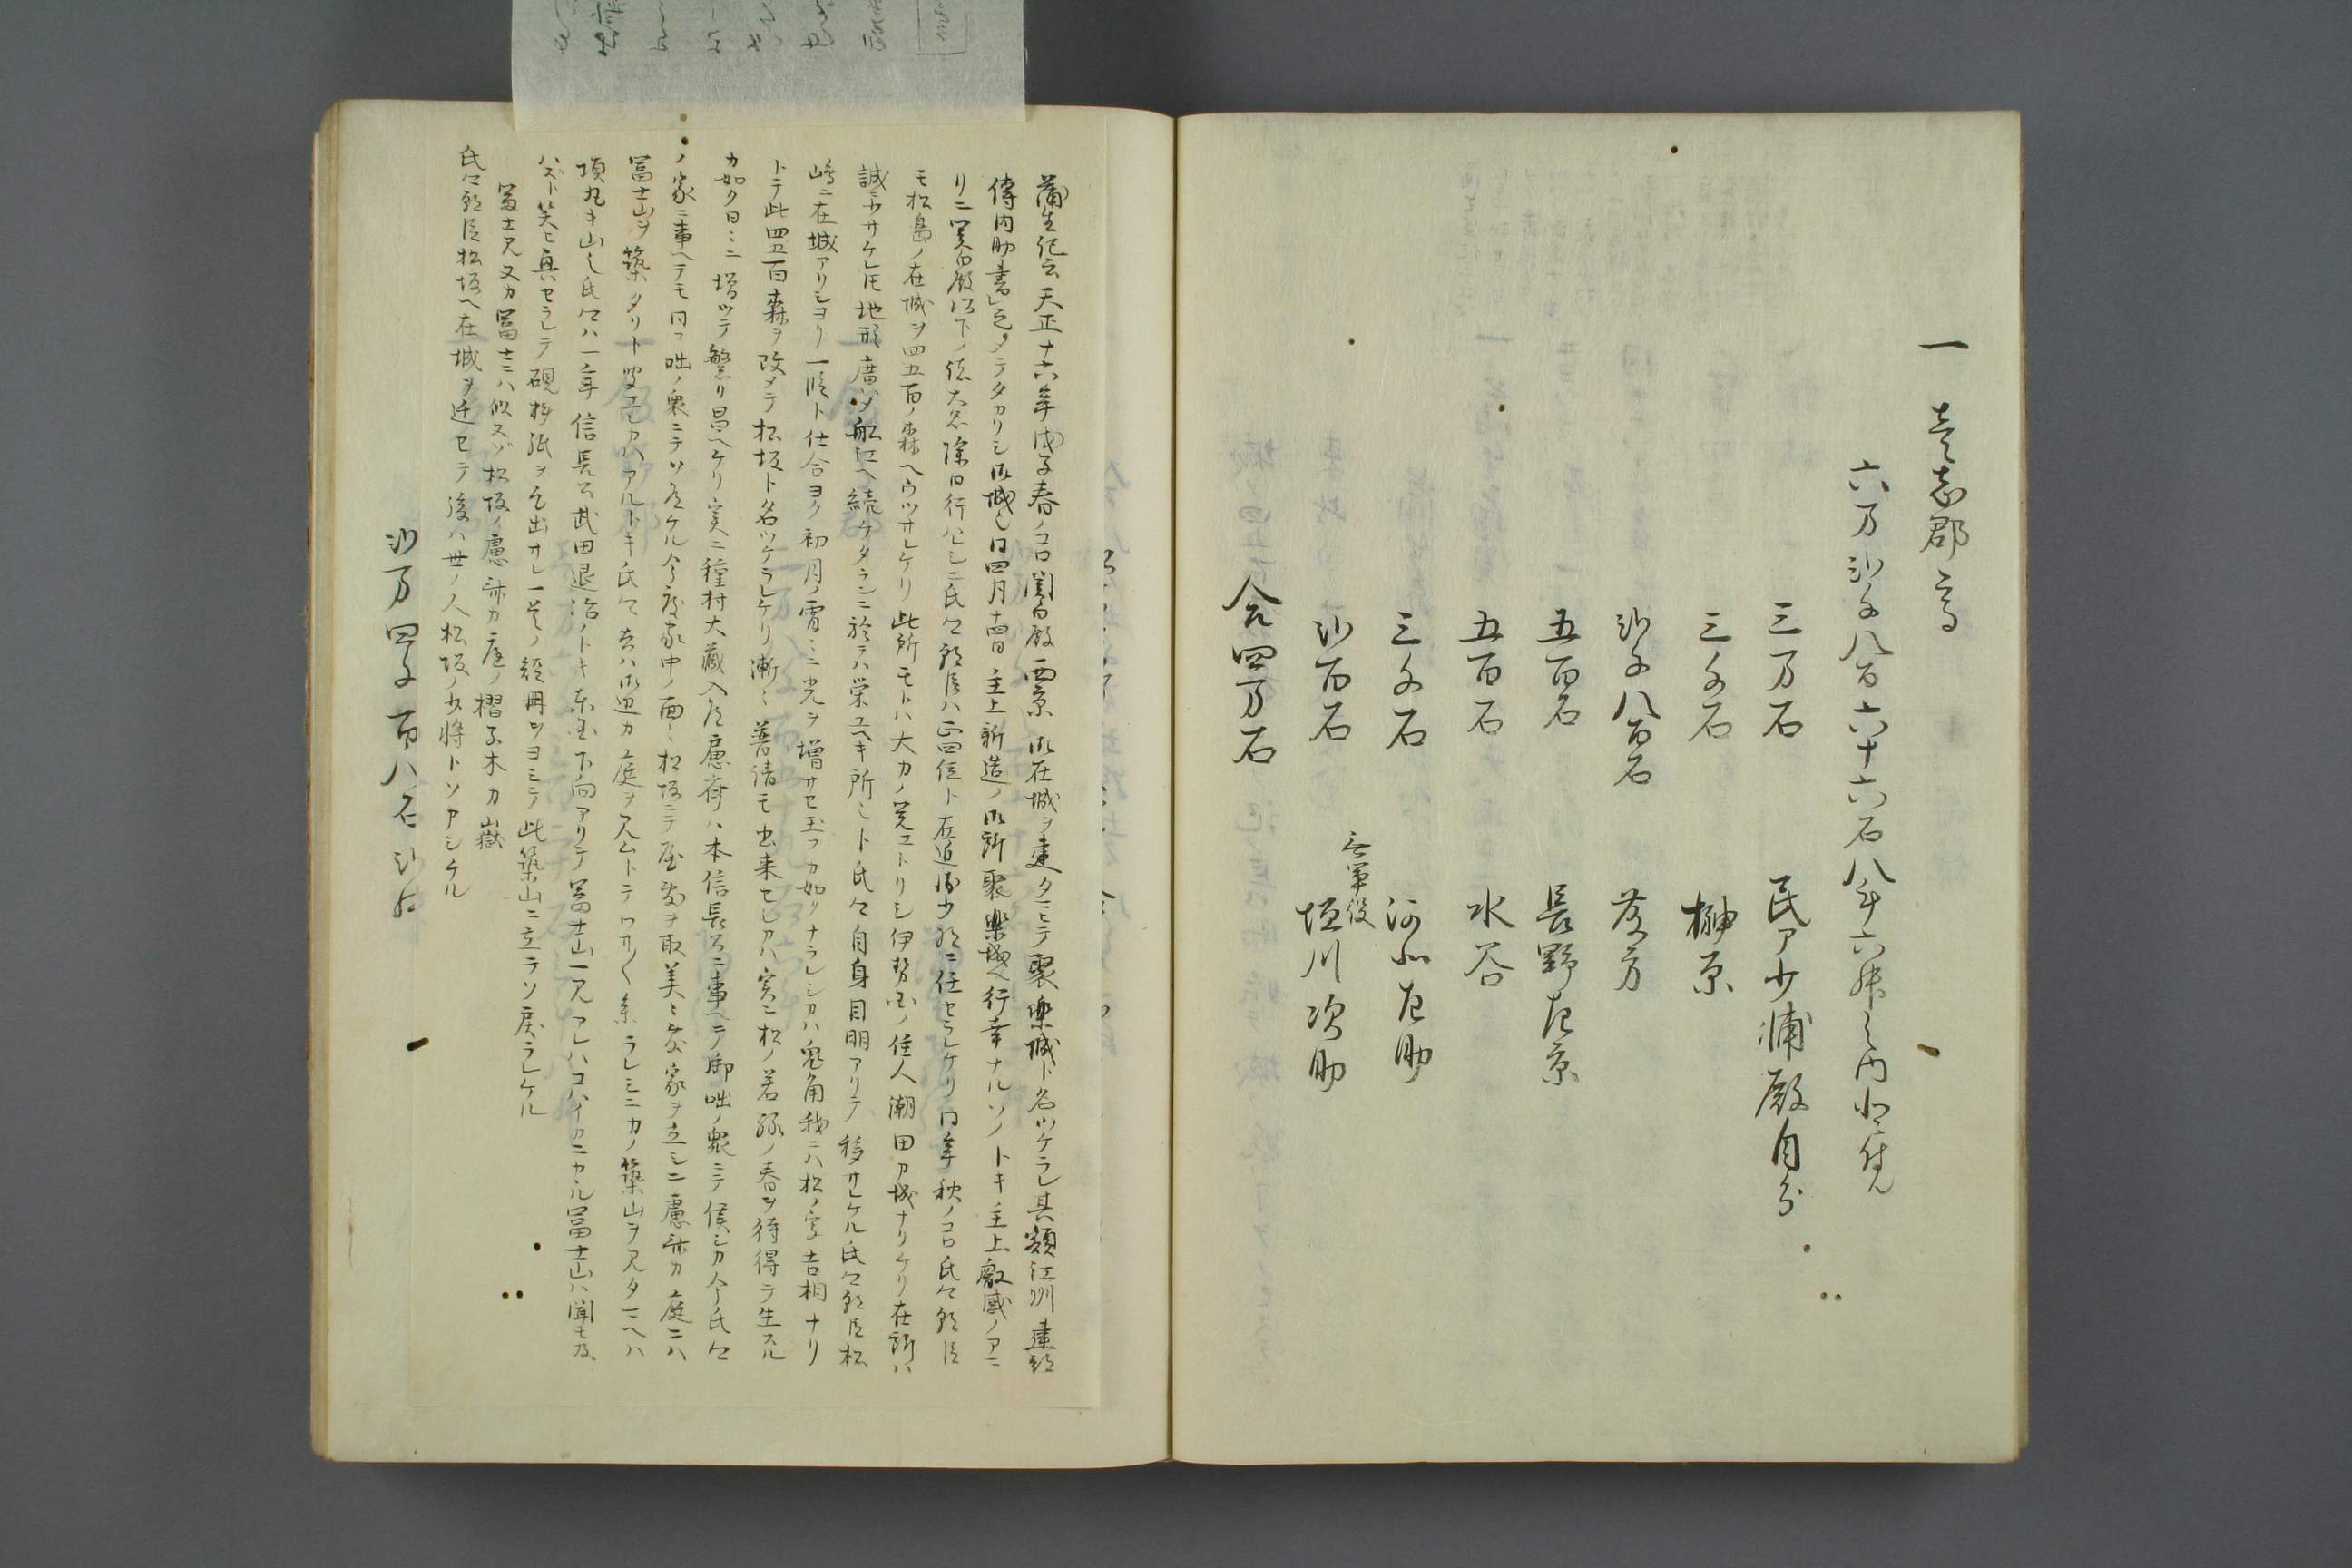 一 壱志郡之高
六万弐千八百六十六石八斗六升之内
三万石 民ア少浦殿自分
三千石 榊原
弐千八百石
五百石 長野左京
五百石 水谷
三千石 左助
弐百石 無軍役 垣川次助
合四万石
蒲生記云天正十六年戊子春ノコロ関白殿西京ニ御在城ヲ建タマヒテ聚樂城ト名ツケラレ其額江州建部
傳内助書之メテタカリシ御城也同四月十四日主上新造ノ御所聚樂城ヘ行幸ナルソノトキ主上叡感ノアマ
リニ関白殿以下ノ諸大名除目行ハレシニ氏郷朝臣ハ正四位下左近衛少将ニ任セラレケリ同年秋ノコロ氏郷朝臣
モ松島ノ在城ヲ四五百ノ森ヘウツサレケリ此所モトハ大カノ覚エトリシ伊勢国ノ住人潮田ア城ナリケリ在所ハ
誠ニ少サケレ𪜈地形廣ク船江ヘ続ケタランニ於テハ栄ユヘキ所也ト氏郷自身目明アリテ移サレケル氏郷朝臣松
嶋ニ在城アリショリ一際ト仕合ヨク初月ノ霄々ニ光ヲ増サセ玉フカ如クナラレシカハ兎角我ニハ松ノ字吉相ナリ
トテ此四五百森ヲ改メテ松坂ト名ツケラレケリ漸々普請モ出来セシカハ実ニ松ノ若緑ノ春ヲ待得テ生スル
カ如ク日々ニ増ツテ繁リ昌ヘケリ実ニ種村大藏入道慮斎ハ本信長公ニ事ヘテ御咄ノ衆ニテ侯シカ今氏郷
ノ家ニ事ヘテモ同フ咄ノ衆ニテソ居ケル今度家中ノ面々松坂ニテ屋敷ヲ取美々敷家ヲ立シニ慮斎カ庭ニハ
冨士山ヲ築タリト聞エシカハアルトキ氏郷去ハ御辺カ庭ヲ見ムトテワサ〱来ラレシニカノ築山ヲ見タマヘハ
頂丸キ山也氏郷ハ一年信長公武田退治ノトキ東国下向アリテ冨士山一見アレハコハイカニカヽル冨士山ハ聞モ及
ハズト笑ヒ興セラレテ硯料紙ヲ乞出サレ一首ノ短冊ヲヨミテ此築山ニ立テソ戻ラレケル
冨士見又カ冨士ニハ似スゾ松坂ノ慮斎カ庭ノ摺子木カ嶽
氏郷朝臣松坂ヘ在城ヲ迁セテ後ハ世ノ人松坂ノ少将トソ申シケル
弐万四千百八石弐斗